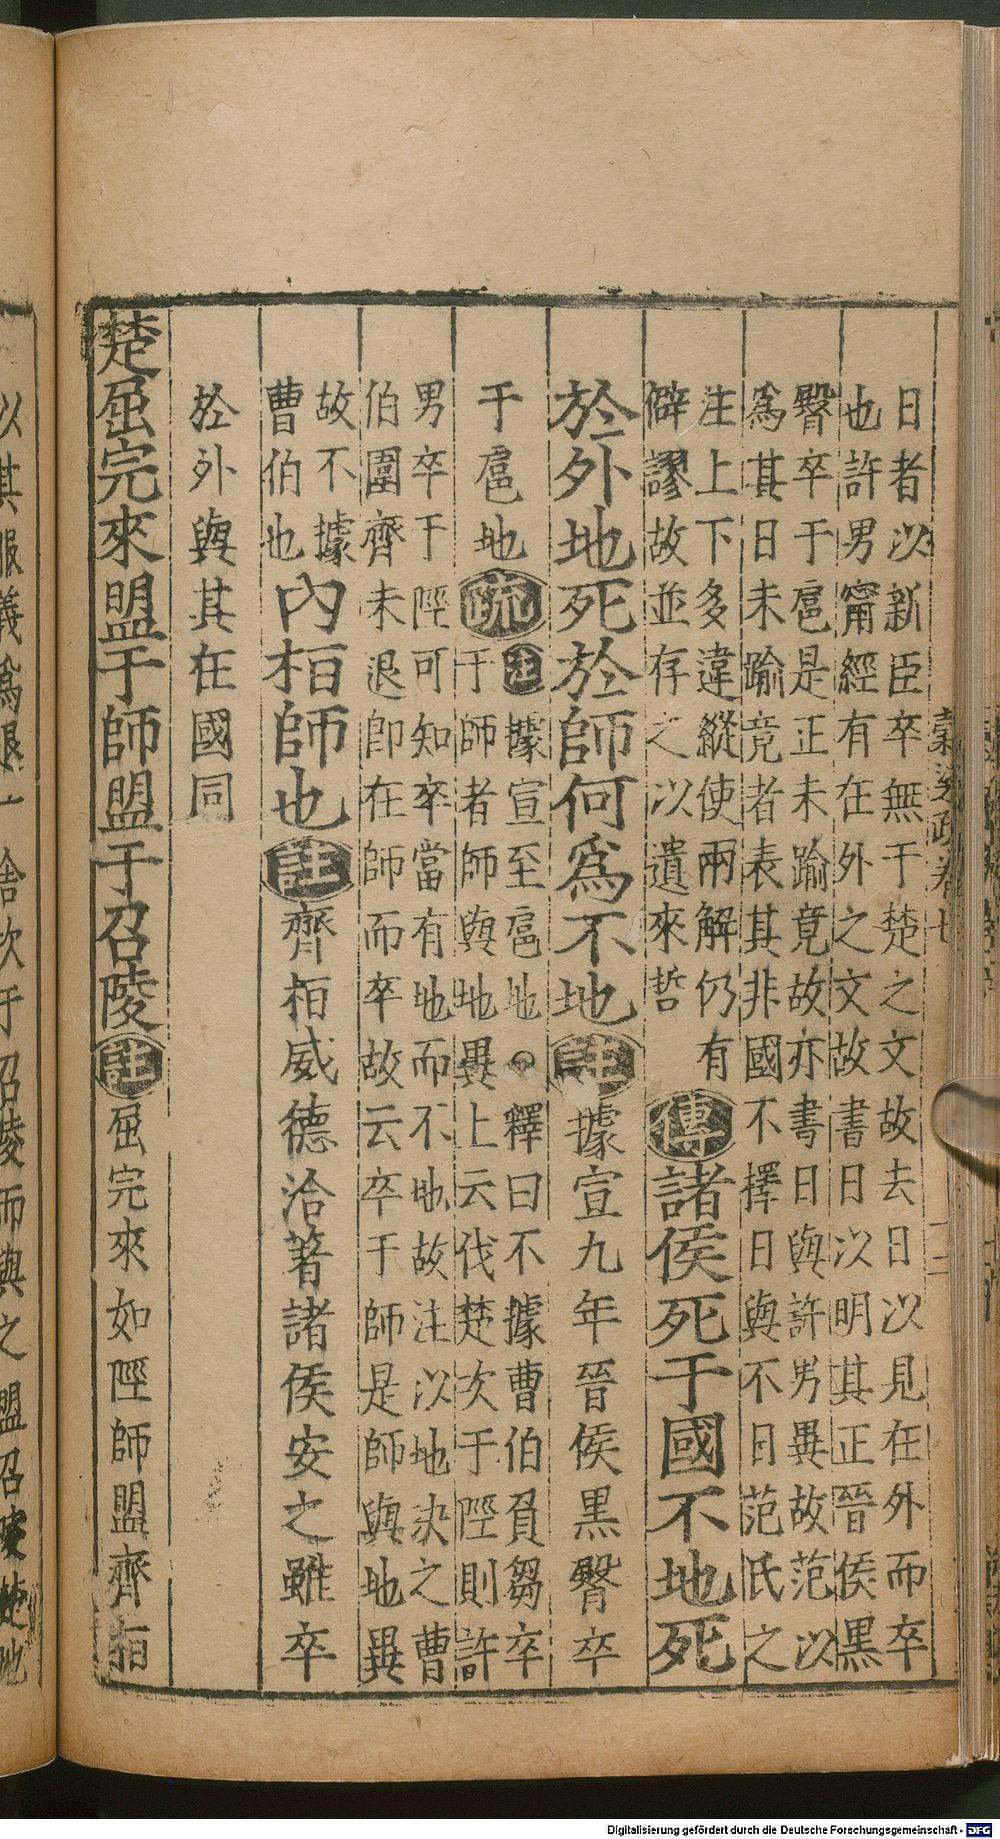 日者以新臣卒無于楚之文故去日以見在外而卒
也許男甯經有在外之文故書日以明其正晉侯黑
臀卒于扈是正未踰竟故亦書日與許男異故范以
爲其日未踰竟者表其非國不擇日與不日范氏之
注上下多違縱使兩解仍有
僻謬故並存之以遺來哲
傳諸侯死于國不地死
於外地死於師何爲不地註據宣九年晉侯黑臀卒
于扈地疏
注據宣至扈地○釋曰不據曹伯負芻卒
于師者師與地異上云伐楚次于陘則許
男卒于陘可知卒當有地而不地故注以地決之曹
伯圍齊未退卽在師而卒故云卒于師是師與地異
故不據
曹伯也
內桓師也註齊桓威德洽著諸侯安之雖卒
於外與其在國同
楚屈完來盟于師盟于召陵註屈完來如陘師盟齊桓
穀梁疏卷七
二
以其服義爲退一舍次于召陵而與之盟召陵楚地
Digitalisierung gefördert durch die Deutsche Forschungsgemeinschaft - DFG